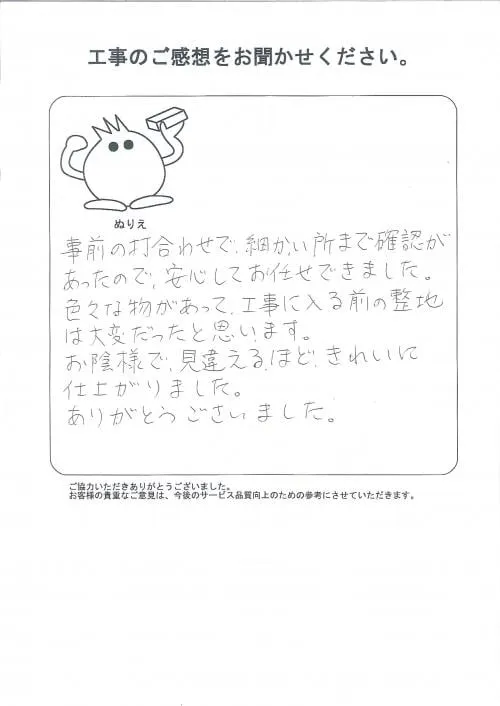 工事のご感想をお聞かせください。
ぬりえ
事前の打合わせで、細かい所まで確認が
あったので、安心してお任せできました。
色々な物があって、工事に入る前の整地
は大変だったと思います。
お陰様で、見違えるほど、きれいに
仕上がりました。
ありがとうございました。
ご協力いただきありがとうございました。
お客様の貴重なご意見は、今後のサービス品質向上のための参考にさせていただきます。